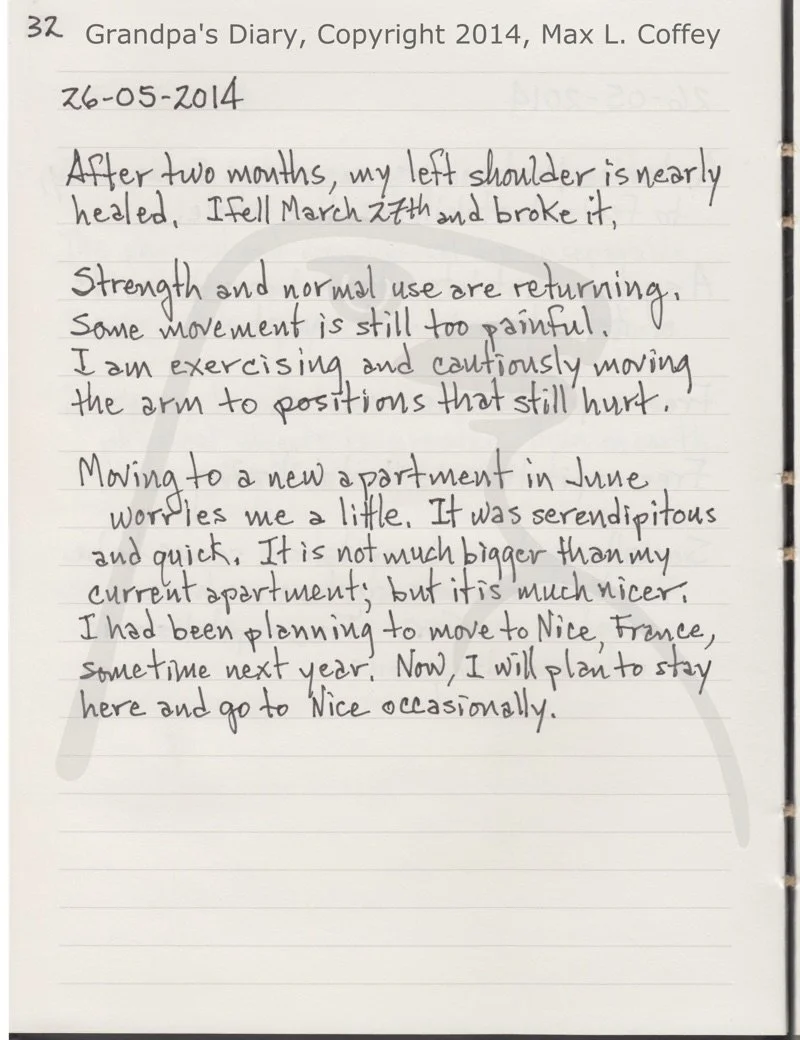 32 Grandpa's Diary, Copyright 2014, Max L. Coffey
26-05-2014
After two months, my left shoulder is nearly
healed. I fell March 27th and broke it.
Strength and normal use are returning.
Some movement is still too painful.
I am exercising and cautiously moving
the arm to positions that still hurt.
Moving to a new apartment in June
worries me a little. It was serendipitous
and quick. It is not much bigger than my
current apartment; but it is much nicer.
I had been planning to move to Nice, France,
sometime next year. Now, I will plan to stay
here and go to Nice occasionally.